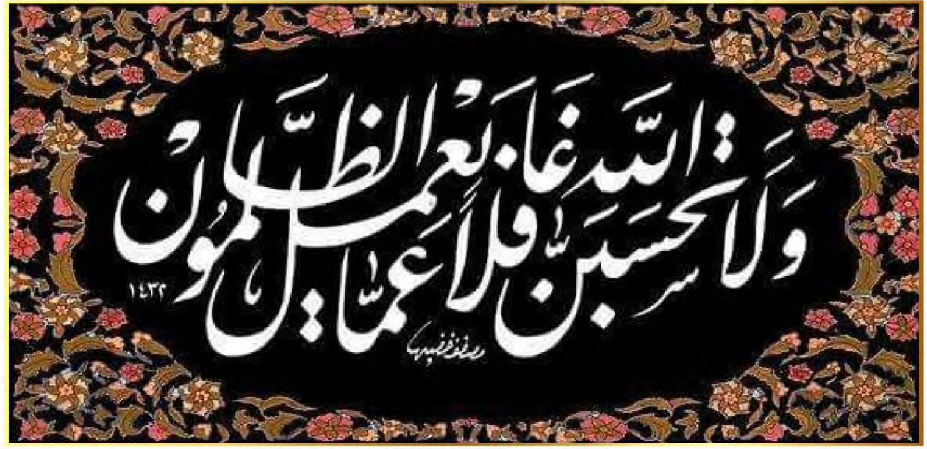 وَلَا تَحْسَبَنَّ اللَّهَ غَافِلًا عَمَّا يَعْمَلُ الظَّالِمُونَ
١٤٣٢